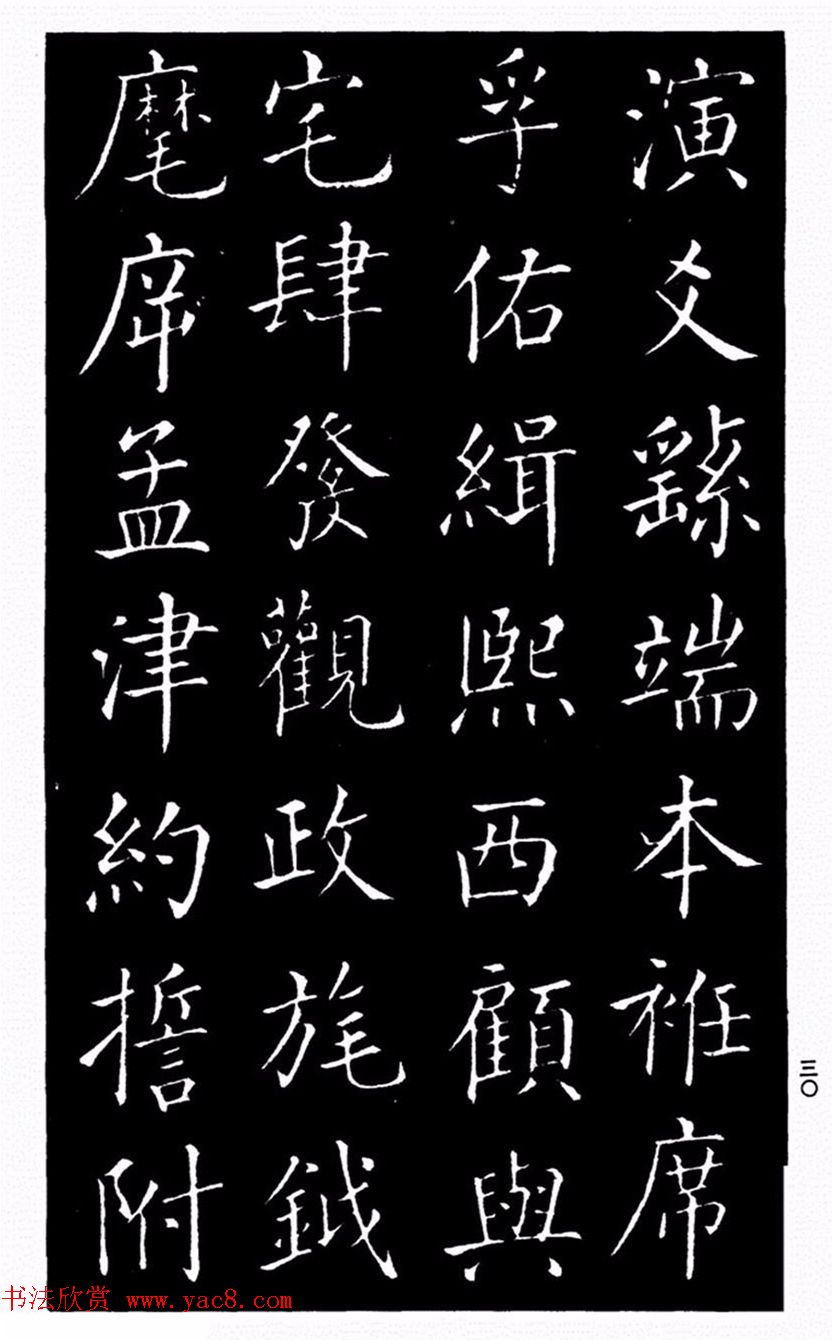 演爻繇端本袵席
孚佑緝熙西顧與
宅肆發觀政旄鉞
麾㡿孟津約誓附
三〇
书法欣赏 www.yac8.com